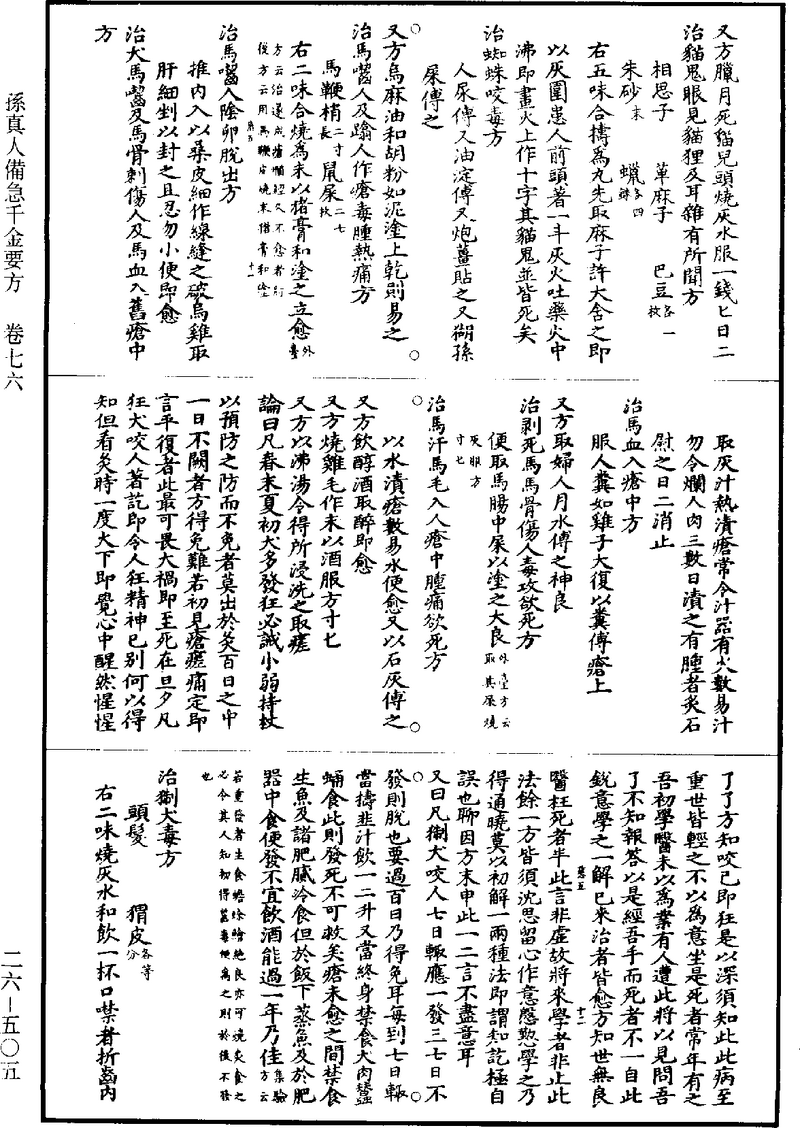 孫真人備急千金要方　卷七六
二六—五〇五
又方臘月死貓兒頭燒灰水服一錢匕日二
治貓鬼眼見貓狸及耳雜有所聞方
相思子　萆麻子　巴豆各一枚
朱砂末　蠟各四銖
右五味合擣為丸先取麻子許大含之即
以灰圍患人前頭著一斗灰火吐藥火中
沸即畫火上作十字其貓鬼並皆死矣
治蜘蛛咬毒方
人尿傅又油淀傅又炮薑貼之又猢孫
屎傅之
又方烏麻油和胡粉如泥塗上乾則易之
治馬囓人及蹹人作瘡毒腫熱痛方
馬鞭梢長二寸　鼠屎二七枚
右二味合燒為末以猪膏和塗之立愈外臺
方云治遂成瘡爛經久不愈者肘
後方云用馬鞭皮燒末猪膏和塗
治馬囓人陰卵脫出方
推內入以桑皮細作線縫之破烏雞取
肝細剉以封之且忍勿小便即愈
治犬馬囓及馬骨刺傷人及馬血入舊瘡中
方
取灰汁熱漬瘡常令汁器有火數易汁
勿令爛人肉三數日漬之有腫者炙石
尉之日二消止
治馬血入瘡中方
服人糞如雞子大復以糞傅瘡上
又方取婦人月水傅之神良
治剥死馬馬骨傷人毒攻欲死方
便取馬腸中屎以塗之大良外臺方云取其屎燒
灰服方
寸匕
治馬汗馬毛入人瘡中腫痛欲死方
以水漬瘡數易水便愈又以石灰傅之
又方飲醇酒取醉即愈
又方燒雞毛作末以酒服方寸匕
又方以沸湯令得所浸洗之取瘥
論曰凡春末夏初犬多發狂必誡小弱持杖
以預防之防而不免者莫出於灸百日之中
一日不闕者方得免難若初見瘡瘥痛定即
言平復者此最可畏大禍即至死在旦夕凡
狂犬咬人著訖即令人狂精神已別何以得
知但看灸時一度火下即覺心中醒然惺惺
了了方知咬已即狂是以深須知此此病至
重世皆輕之不以為意坐是死者常年有之
吾初學醫未以為業有人遭此將以見問吾
了不知報答以是經吾手而死者不一自此
銳意學之一解已來治者皆愈方知世無良
醫枉死者半此言非虛故將來學者非止此
法餘一方皆須沈思留心作意慇懃學之乃
得通曉莫以初解一兩種法即謂知訖極自
誤也聊因方末申此一二言不盡意耳
又曰凡猘犬咬人七日輒應一發三七日不
發則脫也要過百日乃得免耳每到七日輒
當擣韭汁飲一二升又當終身禁食犬肉蠶
蛹食此則發死不可救矣瘡未愈之間禁食
生魚及諸肥膩冷食但於飯下蒸魚及於肥
器中食便發不宜飲酒能過一年乃佳集驗方云
治猘犬毒方
頭髮　猬皮各等分
右二味燒灰水和飲一杯口噤者折齒內